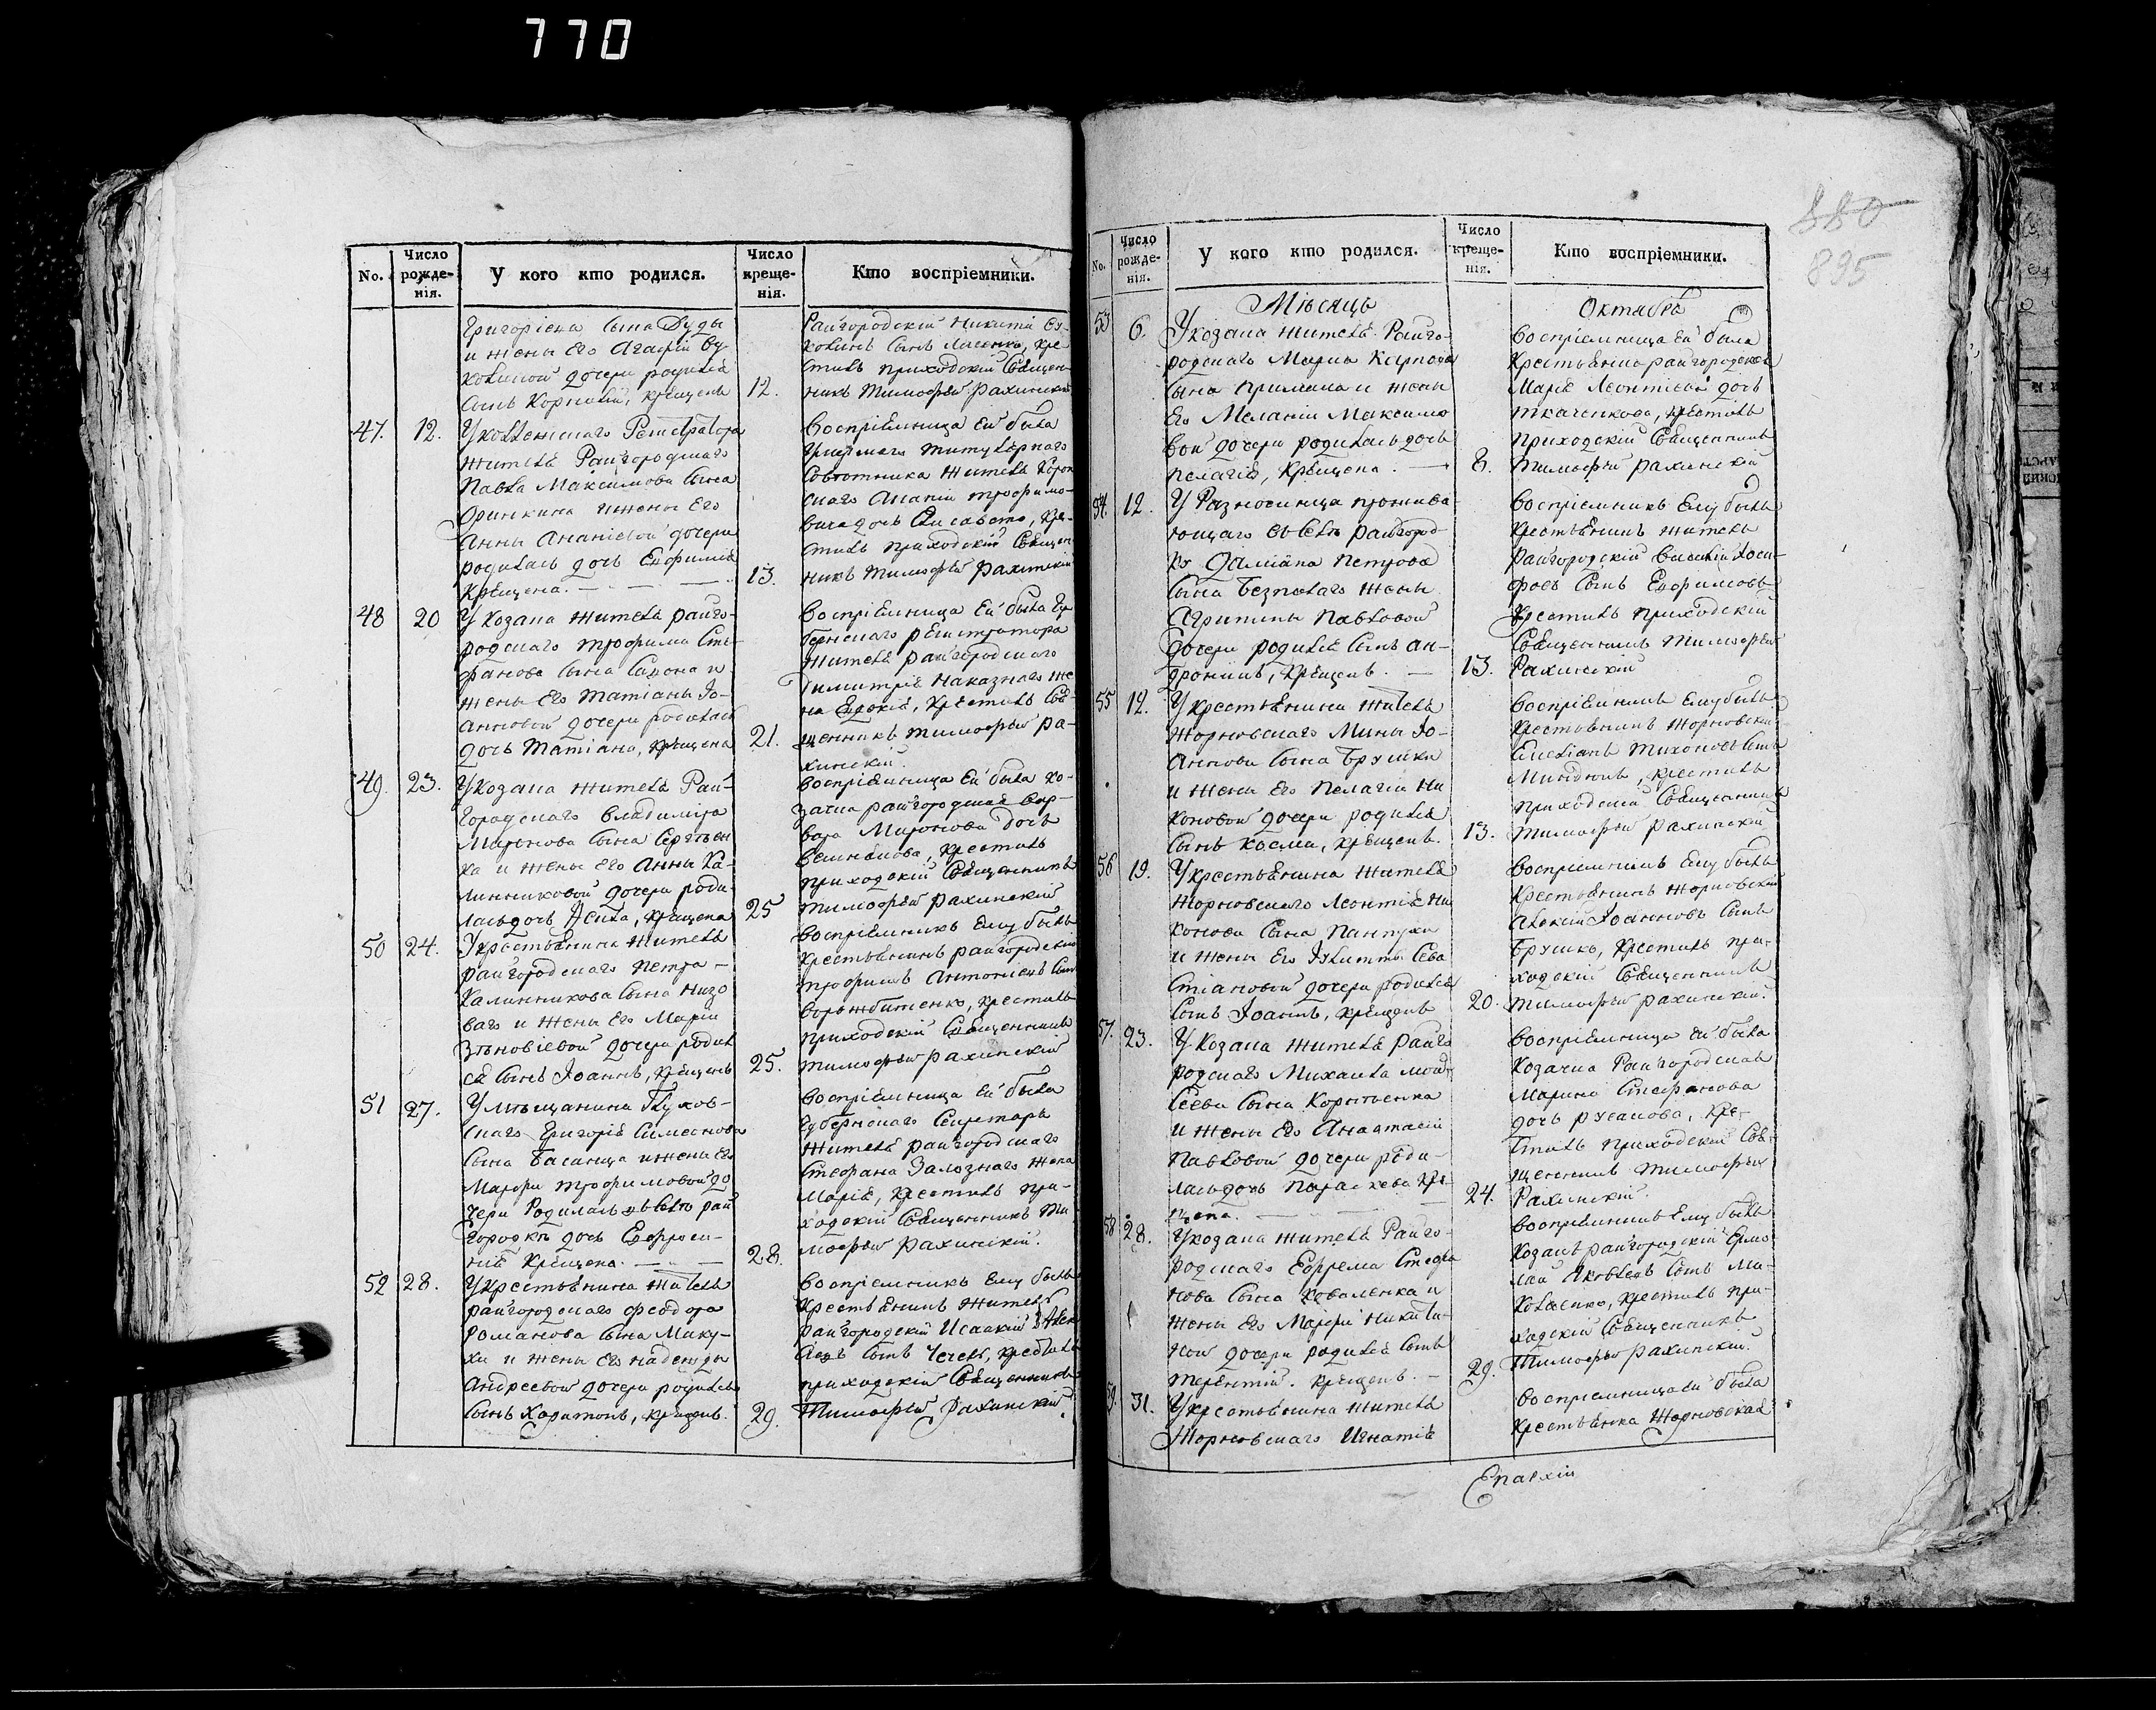 770
880
895
No.
Число рожде-нія.
У кого кто родился.
Число креще-нія.
Кто воспріемники.
Григоріева сына Дуды
и жены Его Агафіи Ву-
коловой дочери родился
Сынъ Корнилій, крещенъ
12.
Райгородскій Никита
сынъ Лисенко, кре-
стилъ приходскій Священ-
никъ Тимофей Рахинскій
47. 12.
У коллежскаго Регистратора
жителя Райгородскаго
Павла Максимова Сына
Оринкина и жены Его
Анны Ананіевой дочери
родилась дочь Евфимія
Крещена.
13.
Воспріемница Ей была
титулярнаго
Совѣтника жителя
Ананіи Трофимо-
вича дочь Елисавета, кре-
стилъ приходскій Священ-
никъ Тимофей Рахинскій
48 20
У козака жителя райго-
родскаго Трофима Сте-
фанова Сына и
жены Его Татіаны Іо-
анновой дочери родилась
дочь Татіана, крещена
21.
Воспріемница Ей была Гу-
бернскаго регистратора
жителя райгородскаго
Димитрія Наказнаго же-
на Евдокія, крестилъ Свя-
щенникъ Тимофей Ра-
хинскій.
49. 23.
У козака жителя Рай-
городскаго Владиміра
Миронова Сына
ка и жены Его Анны Ка-
линниковой дочери роди-
лась дочь крещена
25
Воспріемница Ей была ко-
зачка райгородская Вар-
вара Миронова дочь
крестилъ
приходскій Священникъ
Тимофей Рахинскій
50 24.
У крестьянина жителя
райгородскаго Петра
Калинникова Сына Низо-
ваго и жены Его Маріи
Зѣновіевой дочери родил-
ся Сынъ Іоаннъ, крещенъ
25.
Воспріемникъ Ему былъ
крестьянинъ райгородскій
Трофимъ Антоніевъ Сынъ
Ворожбитенко, крестилъ
приходскій Священникъ
Тимофей Рахинскій
51 27.
У мѣщанина Глухов-
скаго Григорія Симеонова
Сына Басанца и жены Его
Марфы Трофимовой до-
чери Родилась въ селѣ рай-
городкѣ дочь Евфроси-
нія Крещена.
28.
Воспріемница Ей была
Губернскаго Секретаря
жителя райгородскаго
Стефана Залознаго жена
Марія, крестилъ при-
ходскій Священникъ Ти-
мофей Рахинскій.
52 28.
У крестьянина жителя
райгородскаго Феодора
Романова Сына Маку-
хи и жены Его Надежды
Андреевой дочери родился
Сынъ Харитонъ, крещенъ.
29.
Воспріемникъ Ему былъ
крестьянинъ житель
райгородскій Исаакій
Сынъ крестилъ
приходскій Священникъ
Тимофей Рахинскій
No.
Число рожде-нія.
У кого кто родился.
Число креще-нія.
Кто воспріемники.
Мѣсяць
Октябрь
53 6.
У козака жителя Райго-
родскаго Марка Карпова
Сына Примака и жены
Его Меланіи Максимо-
вой дочери родилась дочь
Пелагія, Крещена.
8.
Воспріемница Ей была
Крестьянка райгородская
Марія Леонтіева дочь
Ткаченкова, крестилъ
Приходскій Священникъ
Тимофей Рахинскій
54. 12.
У Разночинца прожива-
ющаго въ селѣ Райгород-
кѣ Даміана Петрова
Сына Безпалаго жены
Агрипины Павловой
дочери родился Сынъ Ан-
дроникъ, Крещенъ.
13.
Воспріемникъ Ему былъ
Крестьянинъ житель
райгородскій Василій Іоси-
фовъ Сынъ
Крестилъ приходскій
Священникъ Тимофей
Рахинскій
55 12.
У крестьянина жителя
Жорновскаго Мины Іо-
аннова Сына Брушка
и жены Его Пелагіи Ни-
коновой дочери родился
Сынъ Косма, крещенъ.
13.
Воспріемникъ Ему былъ
Крестьянинъ Жорновскій
Тихоновъ Сынъ
крестилъ
приходскій Священникъ
Тимофей Рахинскій
56 19.
У крестьянина жителя
Жорновскаго Леонтія Ни-
конова Сына Пантухи
и жены Его Іулитты Сева-
стіановой дочери родился
Сынъ Іоаннъ, крещенъ
20.
Воспріемникъ Ему былъ
Крестьянинъ Жорновскій
Алексій Іоанновъ Сынъ
Брушко, крестилъ при-
ходскій Священникъ
Тимофей Рахинскій.
57. 23.
У Козака жителя Райго-
родскаго Михаила Мои-
сеева Сына Корнѣенка
и жены Его Анастасіи
Павловой дочери роди-
лась дочь Параскева кре-
щена.
24.
Воспріемница Ей была
Козачка Райгородская
Марина Стефанова
дочь Русанова, кре-
стилъ приходскій Свя-
щенникъ Тимофей
Рахинскій.
58 28.
У козака жителя Райго-
родскаго Ефрема Стефа-
нова Сына Коваленка и
жены Его Марфы Никити-
ной дочери родился Сынъ
Терентій. Крещенъ.
29.
Воспріемникъ Ему былъ
Козакъ райгородскій Ермо-
лай Яковлевъ Сынъ Ми-
коленко, крестилъ при-
ходскій Священникъ
Тимофей Рахинскій.
59. 31.
У крестьянина жителя
Жорновскаго Игнатія
Воспріемница ей была
крестьянка Жорновская
Епархіи